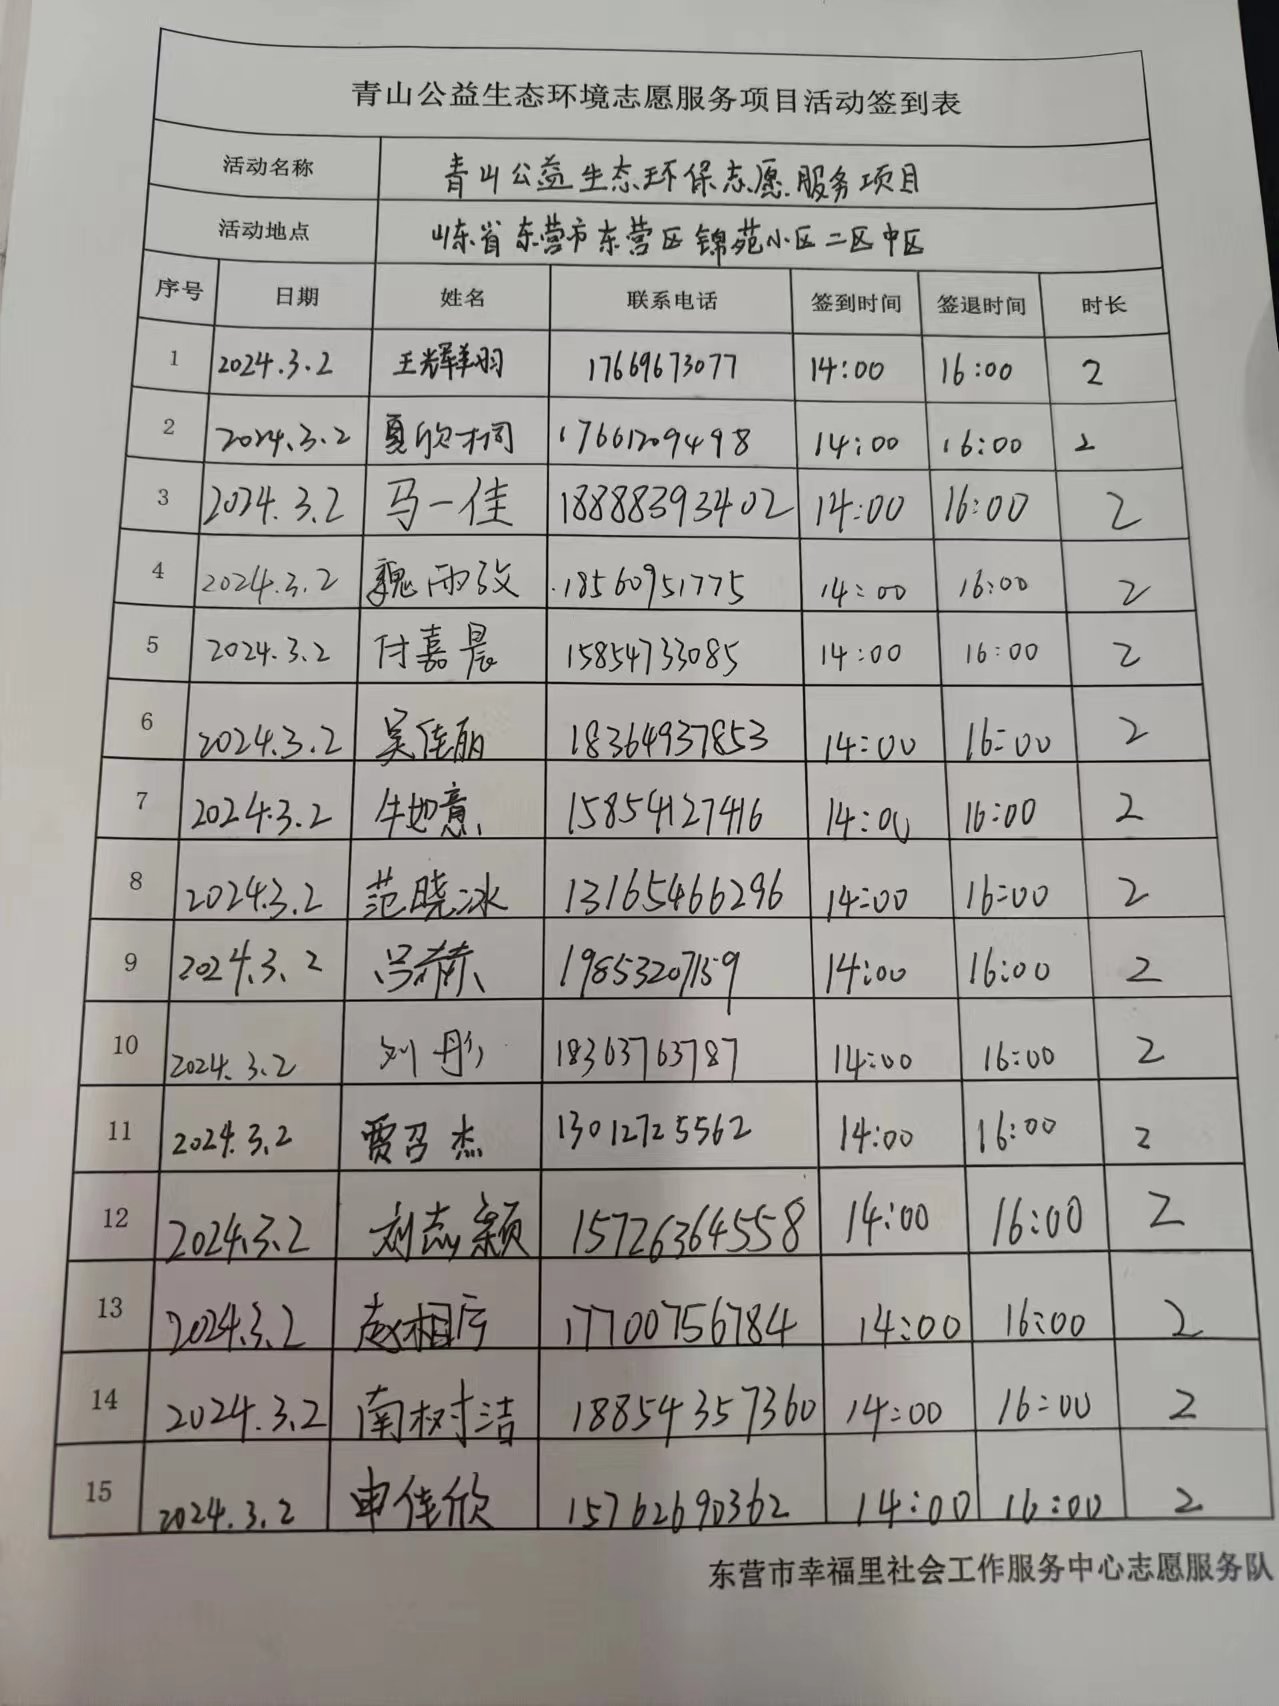 青山公益生态环境志愿服务项目活动签到表
活动名称 青山公益生态环保志愿服务项目
活动地点 山东省东营市东营区锦苑小区二区中区
序号 日期 姓名 联系电话 签到时间 签退时间 时长
1 2024.3.2 王辉祥羽 17669673077 14:00 16:00 2
2 2024.3.2 夏欣桐 17661209498 14:00 16:00 2
3 2024.3.2 马一佳 18888393402 14:00 16:00 2
4 2024.3.2 魏雨 18560951775 14:00 16:00 2
5 2024.3.2 付嘉晨 15854733085 14:00 16:00 2
6 2024.3.2 吴佳丽 18364937853 14:00 16:00 2
7 2024.3.2 牛如意 15854127416 14:00 16:00 2
8 2024.3.2 范晓冰 13165466296 14:00 16:00 2
9 2024.3.2 吕 19853207159 14:00 16:00 2
10 2024.3.2 刘彤 18363763787 14:00 16:00 2
11 2024.3.2 贾召杰 13012725562 14:00 16:00 2
12 2024.3.2 刘志颖 15726364558 14:00 16:00 2
13 2024.3.2 赵相宇 17700756784 14:00 16:00 2
14 2024.3.2 南树洁 18854357360 14:00 16:00 2
15 2024.3.2 申佳欣 15762690362 14:00 16:00 2
东营市幸福里社会工作服务中心志愿服务队